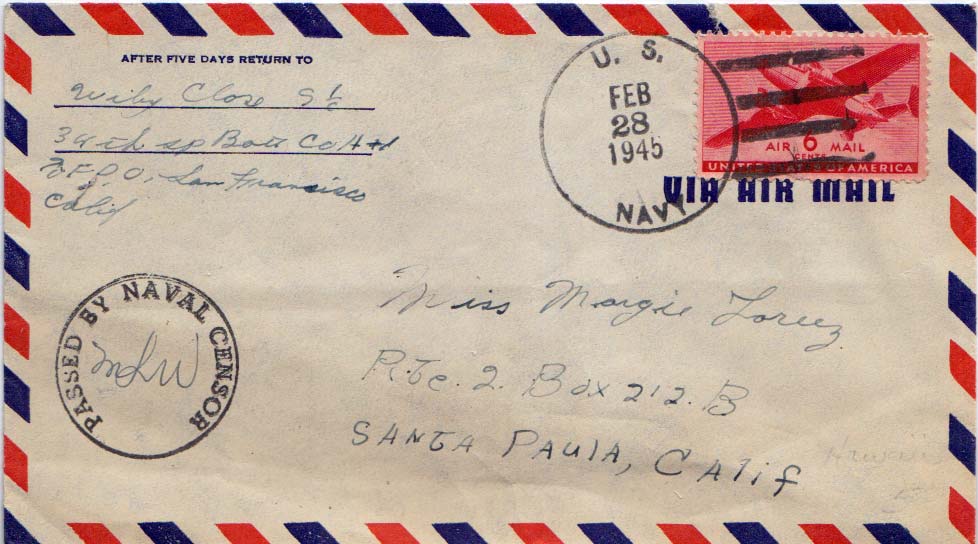 AFTER FIVE DAYS RETURN TO
Close
34th Sp Batt Co
F.P.O. San Francisco
Calif
U. S.
FEB
28
1945
NAVY
AIR 6 MAIL
CENTS
UNITED STATES OF AMERICA
VIA AIR MAIL
PASSED BY NAVAL CENSOR
MLW
Miss Margie Lorenz
Rte. 2. Box 212. B
SANTA PAULA, Calif